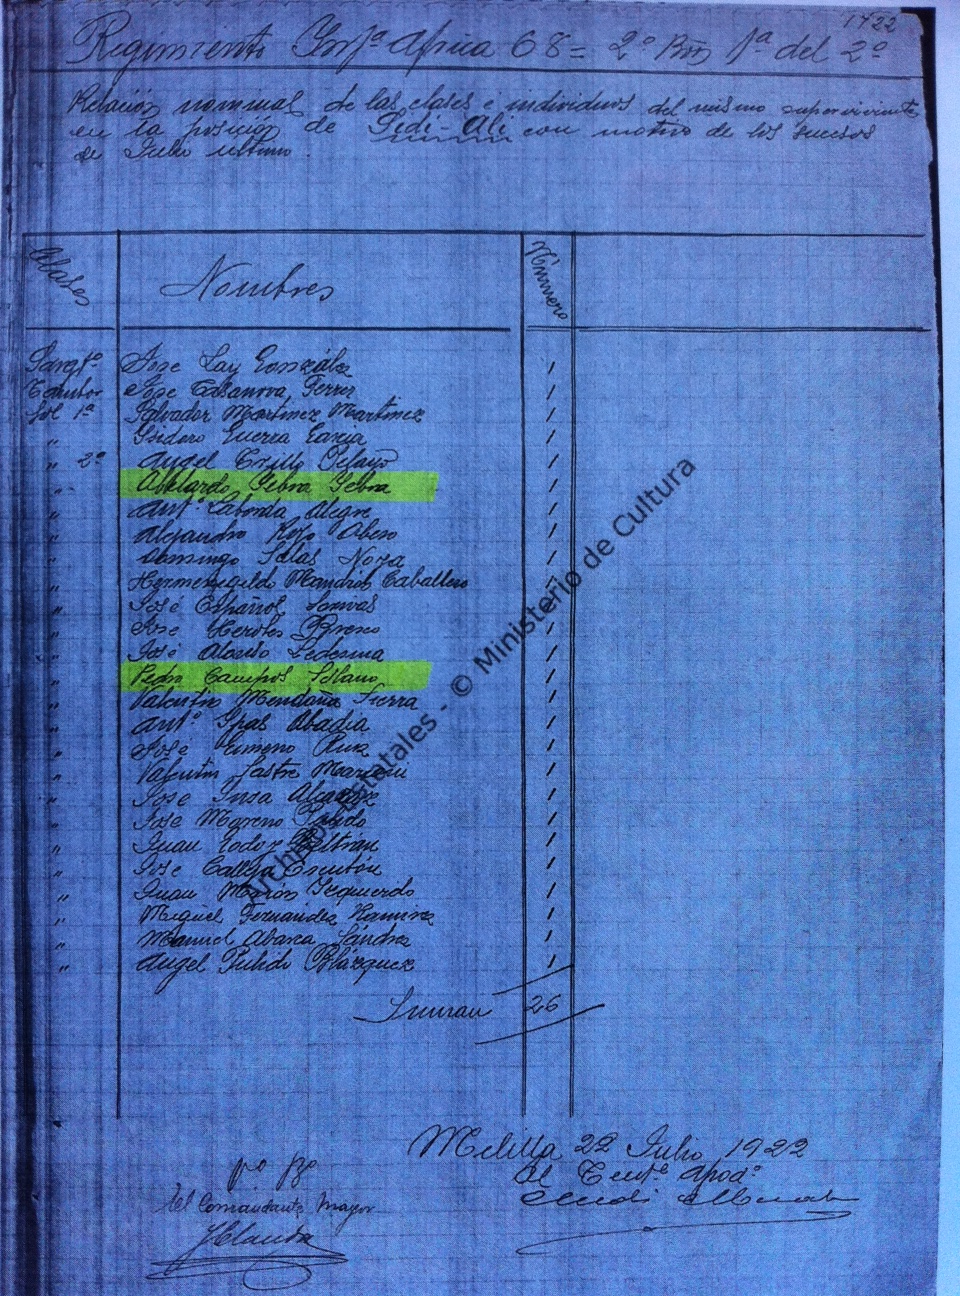 1722
Regimiento Infª Africa 68= 2º Bón 1ª del 2º
Relación nominal de las clases e individuos del mismo
en la posición de Sidi-Ali con motivo de los sucesos
de Julio ultimo.
Clases Nombres Número
Sargtº Jose Lay González 1
Tambor Jose Casanova Ferrer 1
Sol 1ª Salvador Martinez Martinez 1
" Isidoro Guerra Garcia 1
" 2º Angel Trillo Pelayo 1
" Abelardo 1
" Antº Laborda Alegre 1
" Alejandro Royo 1
" Domingo Salas 1
" Hermenegildo Caballero 1
" José Español 1
" Jose 1
" José Alonso Ledesma 1
" Pedro Campos Solano 1
" Valentin Mendaña Sierra 1
" Antº Abadia 1
" Jose Gimeno Ruiz 1
" Valentin Sastre 1
" Jose Insa 1
" Jose Moreno Pulido 1
" Juan Beltrán 1
" José Calleja 1
" Juan Izquierdo 1
" Miguel Fernandez Ramirez 1
" Manuel Abarca Sánchez 1
" Angel Pulido Blázquez 1
Suman 26
Melilla 22 Julio 1922
El Tentº Apodº
Vº Bº
El Comandante Mayor
Archivos Estatales - © Ministerio de Cultura